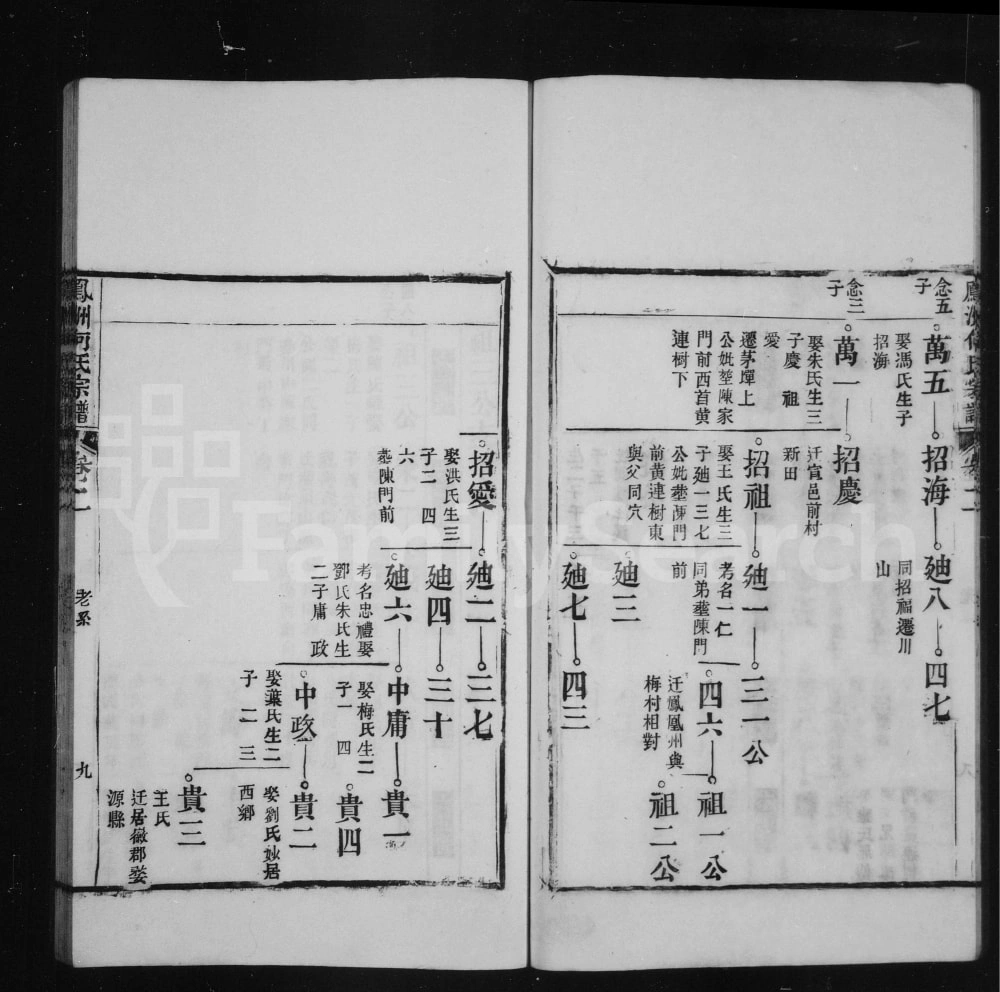 念五
子
萬五
娶馮氏生子
招海
招海
廸八
同招福遷川
山
四七
念三
子
萬一
娶朱氏生三
子慶 祖
愛
遷茅墠上
公妣塟陳家
門前西首黄
連樹下
招慶
迁宣邑前村
新田
招祖
娶王氏生三
子廸一三七
公妣塟陳門
前黄連樹東
與父同穴
廸一
考名一仁
同弟塟陳門
前
三一公
四六
迁鳳凰州與
梅村相對
祖一公
祖二公
廸三
廸七
四三
招愛
娶洪氏生三
子二 四
六
塟陳門前
廸二
三七
廸四
三十
廸六
考名忠禮娶
鄧氏朱氏生
二子庸 政
中庸
娶梅氏生二
子一 四
貴一
貴四
中政
娶葉氏生二
子二 三
貴二
娶劉氏妙居
西鄉
貴三
王氏
迁居徽郡婺
源縣
鳳洲何氏宗譜
卷二
老系
九
FamilySearch